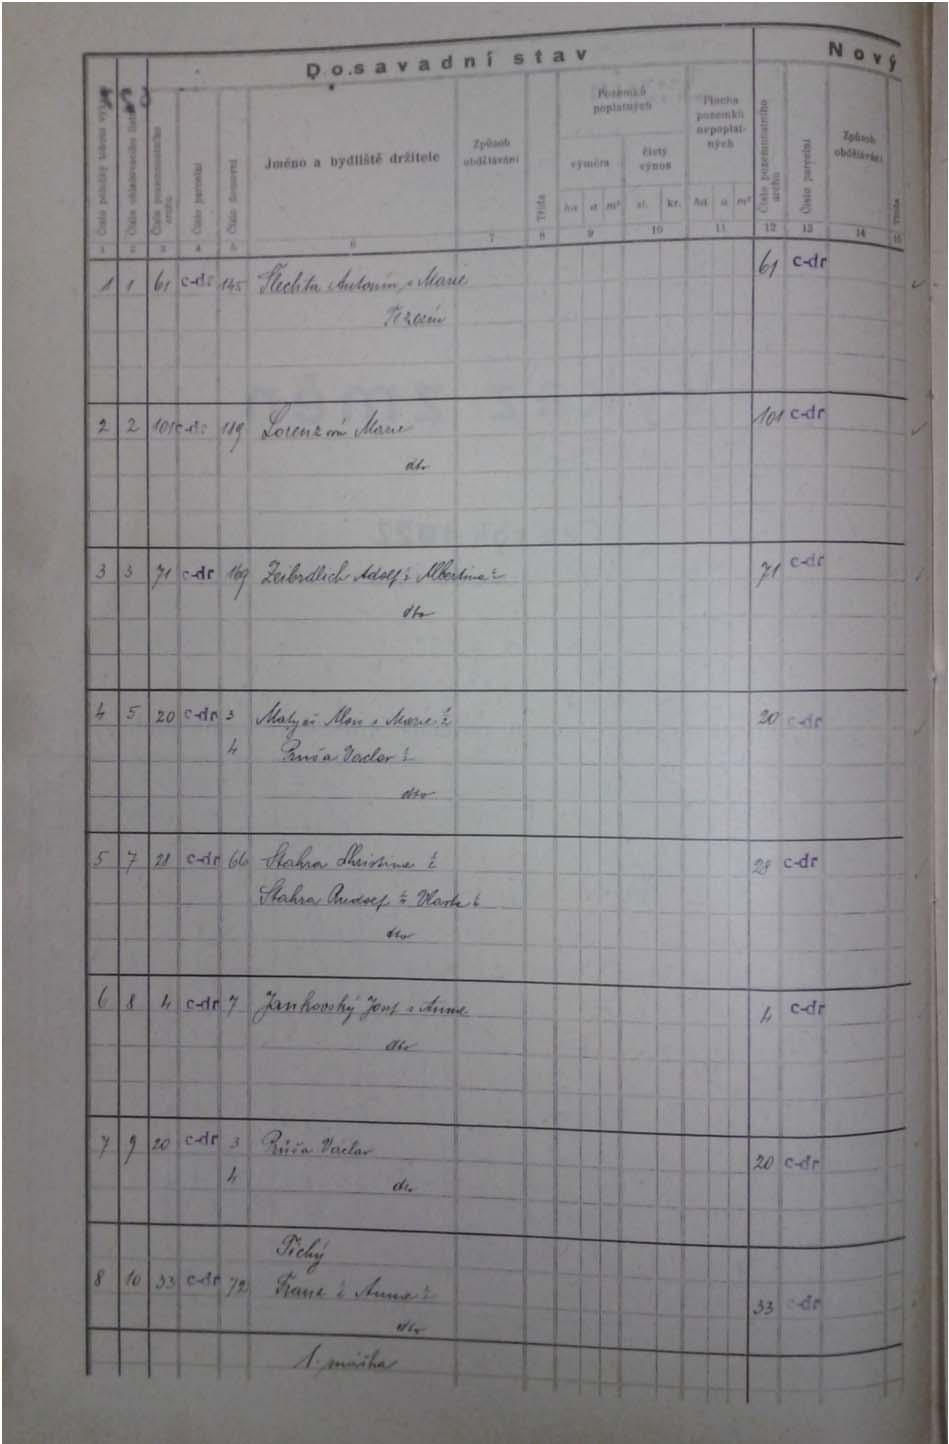 Dosavadní stav
Nový
Číslo parcelní
Číslo domovní
Jméno a bydliště držitele
Způsob obdělávání
Třída
Pozemků poplatných
výměra
čistý výnos
ha a m² zl. kr.
Plocha pozemků nepoplatných
ha a m²
Číslo pozemnostního archu
Číslo parcelní
Způsob obdělávání
Třída
1 2 3 4 5 6 7 8 9 10 11 12 13 14 15
1 1 61 c-dr 145 Šlechta Antonín a Marie 61 c-dr
Terezín
2 2 101 c-dr 119 Lorenzová Marie 101 c-dr
dto
3 3 71 c-dr 169 Adolf ½ Albertina ½ 71 c-dr
dto
4 5 20 c-dr 3 a Marie ½ 20 c-dr
4 Průša Václav ½
dto
5 7 28 c-dr 66 Stahra Christine ½ 28 c-dr
Stahra Rudolf
dto
6 8 4 c-dr 7 Jankovský Josef a Anna 4 c-dr
dto
7 9 20 c-dr 3 Průša Václav 20 c-dr
4 dto
Tichý
8 10 33 c-dr 72 Franz ½ Anna ½ 33 c-dr
dto
1.